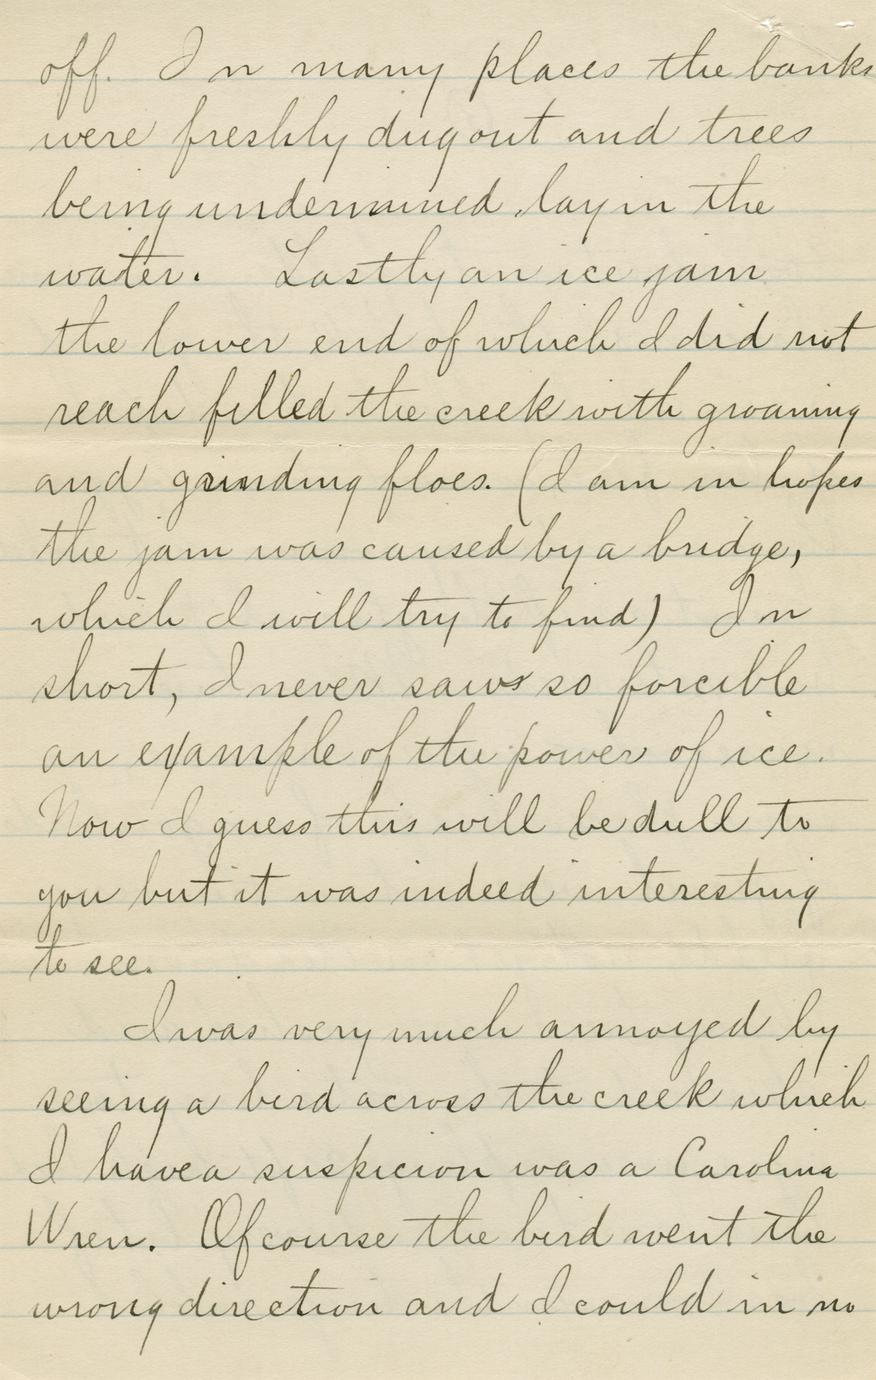 off. In many places the banks
were freshly dug out and trees
being undermined, lay in the
water. Lastly an ice jam
the lower end of which I did not
reach filled the creek with groaning
and grinding floes. (I am in hopes
the jam was caused by a bridge,
which I will try to find) In
short, I never saw so forcible
an example of the power of ice.
Now I guess this will be dull to
you but it was indeed interesting
to see.
I was very much annoyed by
seeing a bird across the creek which
I have a suspicion was a Carolina
Wren. Of course the bird went the
wrong direction and I could in no